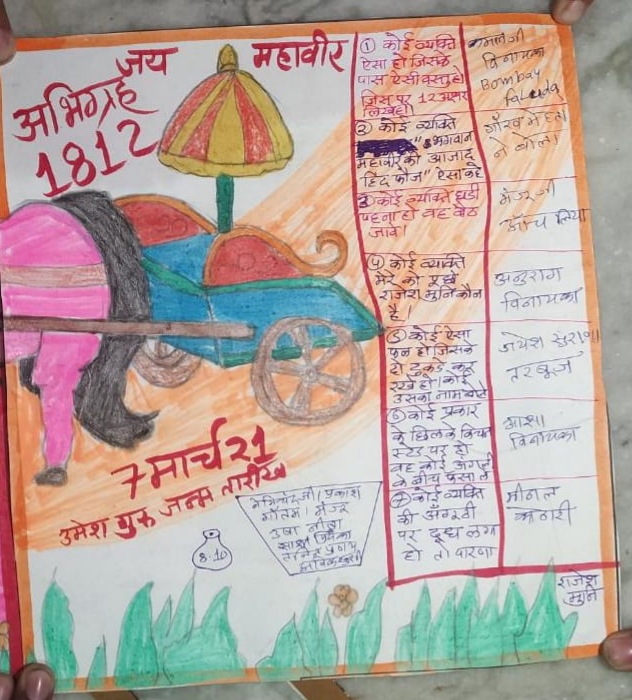 जय महावीर
अभिग्रह
1812
① कोई व्यक्ति
ऐसा हो जिसके
पास ऐसी वस्तु हो
जिस पर 12 अक्षर
लिखे हो
विनायका
Bombay
② कोई व्यक्ति
"भगवान
महावीर की आजाद
हिंद फौज" ऐसा कहे
गौरव मेहता
ने बोला
③ कोई व्यक्ति घड़ी
पहना हो वह बैठ
जावे।
मंजू जी
④ कोई व्यक्ति
मेरे को पूछे
राजेश मुनि कौन
है।
अनुराग
विनायका
⑤ कोई ऐसा
फल हो जिसके
दो टुकड़े कर
रखे हो। कोई
उसका नाम बोले
तरबूज
⑥ कोई प्रकार
के छिलके
पर हो
वह कोई
के बीच फसा
आशा
विनायका
⑦ कोई व्यक्ति
की अँगूठी
पर दूध लगा
हो तो पारणा
मीनल
कटारी
7 मार्च 21
उमेश गुरु जन्म तारीख
प्रकाश
गौतम। मंजू
उषा
8:10
राजेश
मुनि